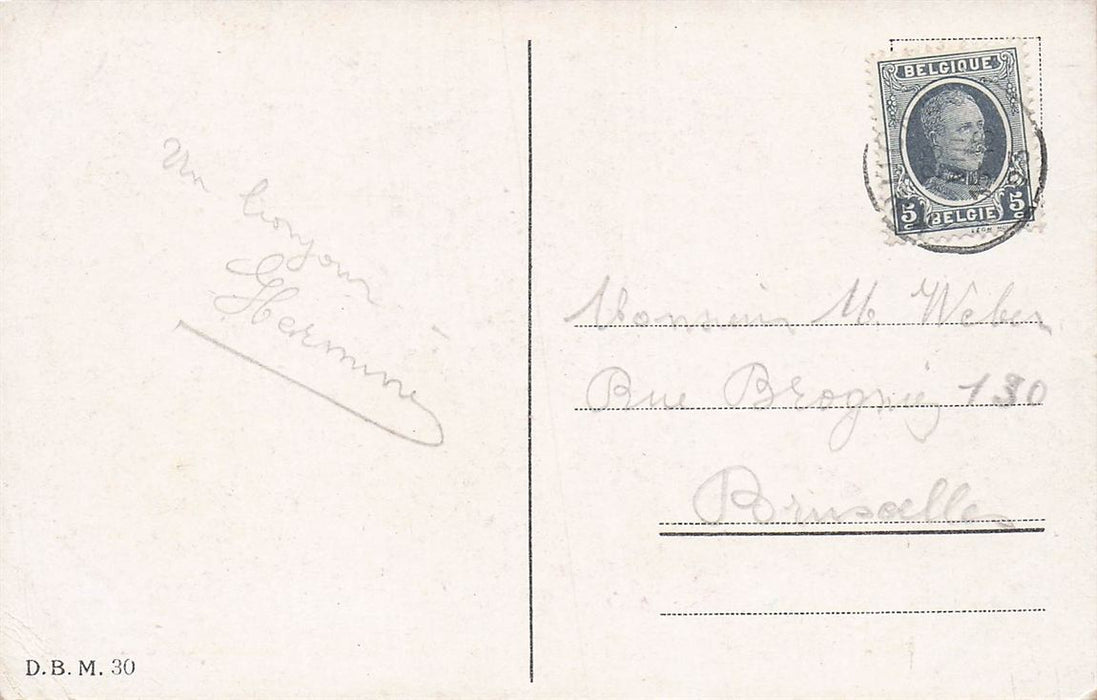 Un bonjour
Hermine
BELGIQUE
5c BELGIE 5c
Monsieur M. Weber
Rue Brogniez 130
Bruxelles
D.B.M. 30